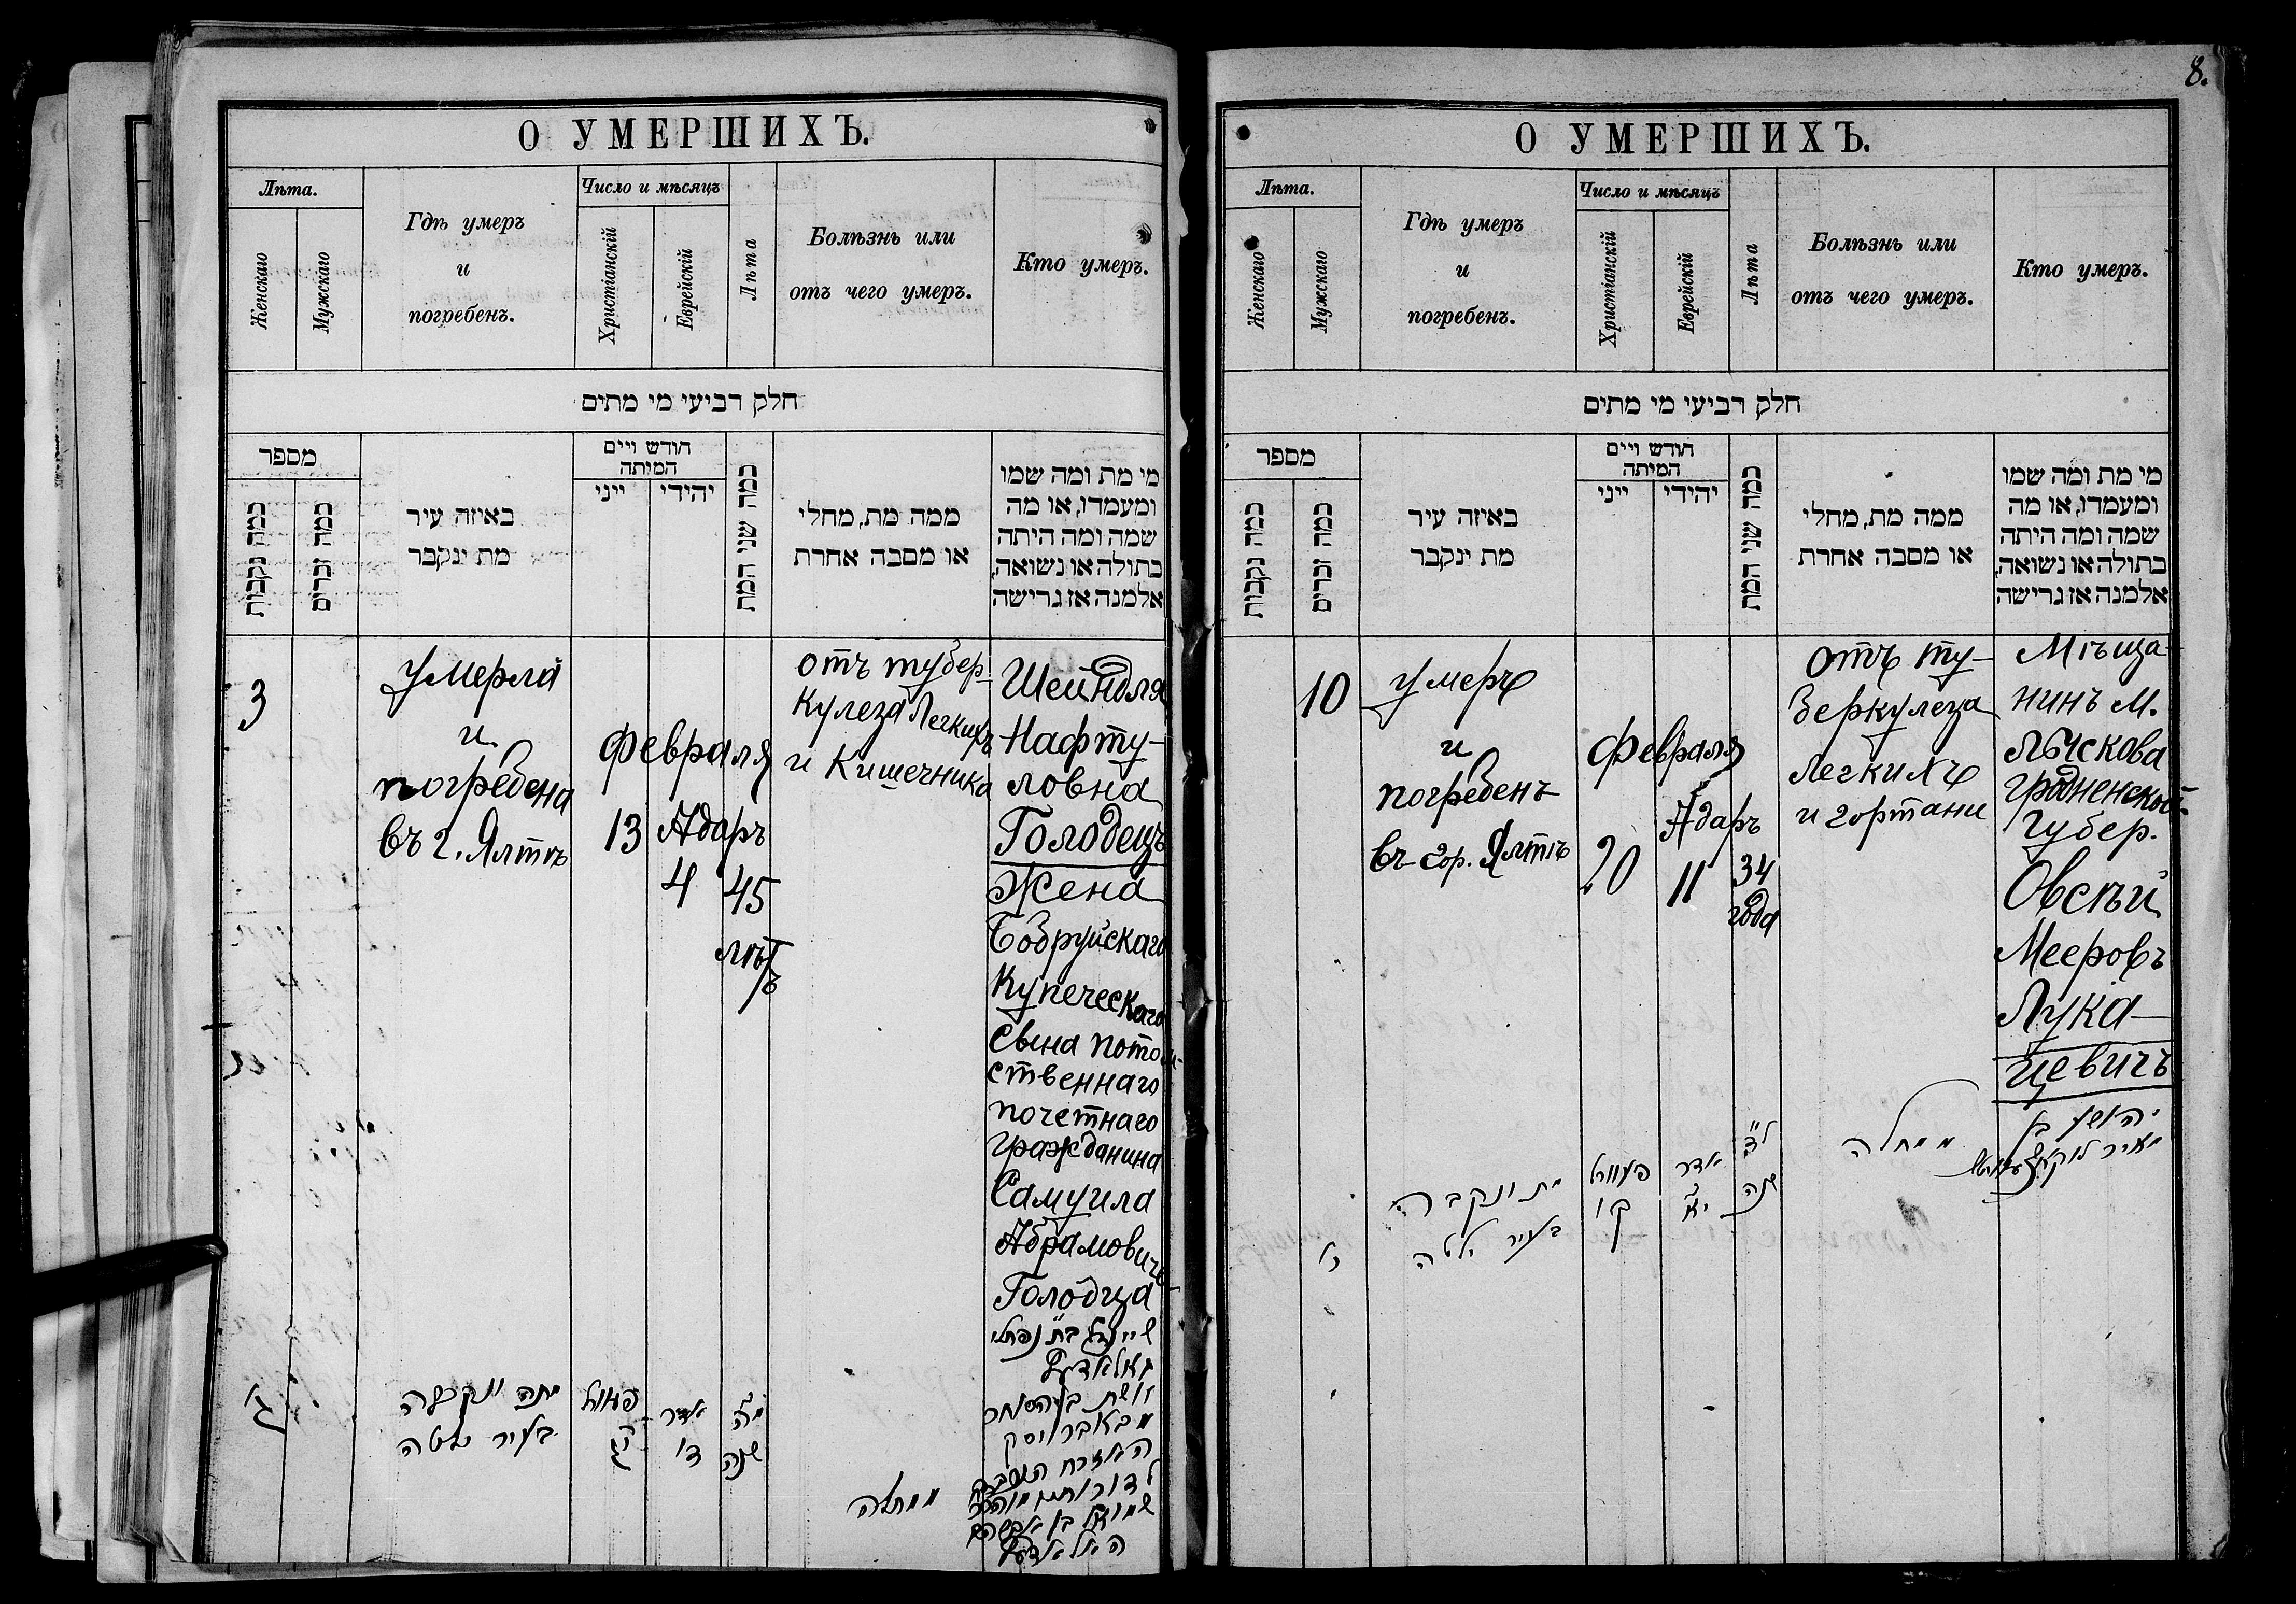 8.
О УМЕРШИХЪ.
Лѣта.
Женскаго
Мужскаго
Гдѣ умеръ
и
погребенъ.
Число и мѣсяцъ
Христіанскій
Еврейскій
Лѣта
Болѣзнь или
отъ чего умеръ.
Кто умеръ.
חלק רביעי מי מתים
מספר
כמה נקבות
כמה זכרים
באיזה עיר
מת ינקבר
חודש ויים
המיתה
ייני
יהידי
כמה שני המת
ממה מת, מחלי
או מסבה אחרת
מי מת ומה שמו
ומעמדו, או מה
שמה ומה היתה
בתולה או נשואה,
אלמנה אז גרישה
3
Умерла
и
погребена
въ г. Ялтѣ
Февраля
13
Адаръ
4
45
лѣтъ
отъ тубер-
кулеза легкихъ
и кишечника
Шейндля
Нафту-
ловна
Голодецъ
жена
Бобруйскаго
купеческаго
сына потом-
ственнаго
почетнаго
гражданина
Самуила
Абрамовича
Голодца
שיינדל בת נפתלי
גאלאדעץ
מבאברויסק
האזרח
שמואל בן אברהם
גאלאדעץ
ג'
מתה ונקברה
בעיר יאלטה
פעוור
אדר
ד'
מ"ה
שנה
ממחלה
О УМЕРШИХЪ.
Лѣта.
Женскаго
Мужскаго
Гдѣ умеръ
и
погребенъ.
Число и мѣсяцъ
Христіанскій
Еврейскій
Лѣта
Болѣзнь или
отъ чего умеръ.
Кто умеръ.
חלק רביעי מי מתים
מספר
כמה נקבות
כמה זכרים
באיזה עיר
מת ינקבר
חודש ויים
המיתה
ייני
יהידי
כמה שני המת
ממה מת, מחלי
או מסבה אחרת
מי מת ומה שמו
ומעמדו, או מה
שמה ומה היתה
בתולה או נשואה,
אלמנה אז גרישה
10
умеръ
и
погребенъ
въ гор. Ялтѣ
Февраля
20
Адаръ
11
34
года
отъ ту-
беркулеза
легкихъ
и гортани
Мѣща-
нинъ м.
Лыскова
Гродненской
губер.
Овсѣй
Мееровъ
Лука-
цевичъ
יהושע בן
מאיר
י'
מת ונקבר
בעיר ילטה
פעוור
כ'
אדר
י"א
ל"ד
שנה
ממחלה